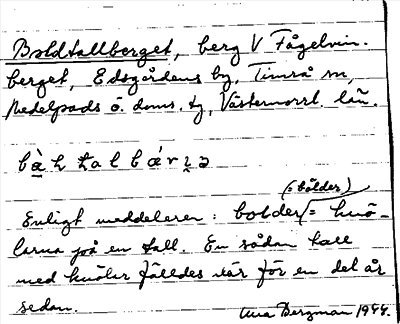 Boldtallberget, berg V Fågelvin-
berget, Edsgårdens by, Timrå sn,
Medelpads ö. doms. tg, Västernorrl. län.
(= bölder)
Enligt meddelaren: bolder = knö-
larna på en tall. En sådan tall
med knölar fälldes där för en del år
sedan.
Una Bergman 1944.